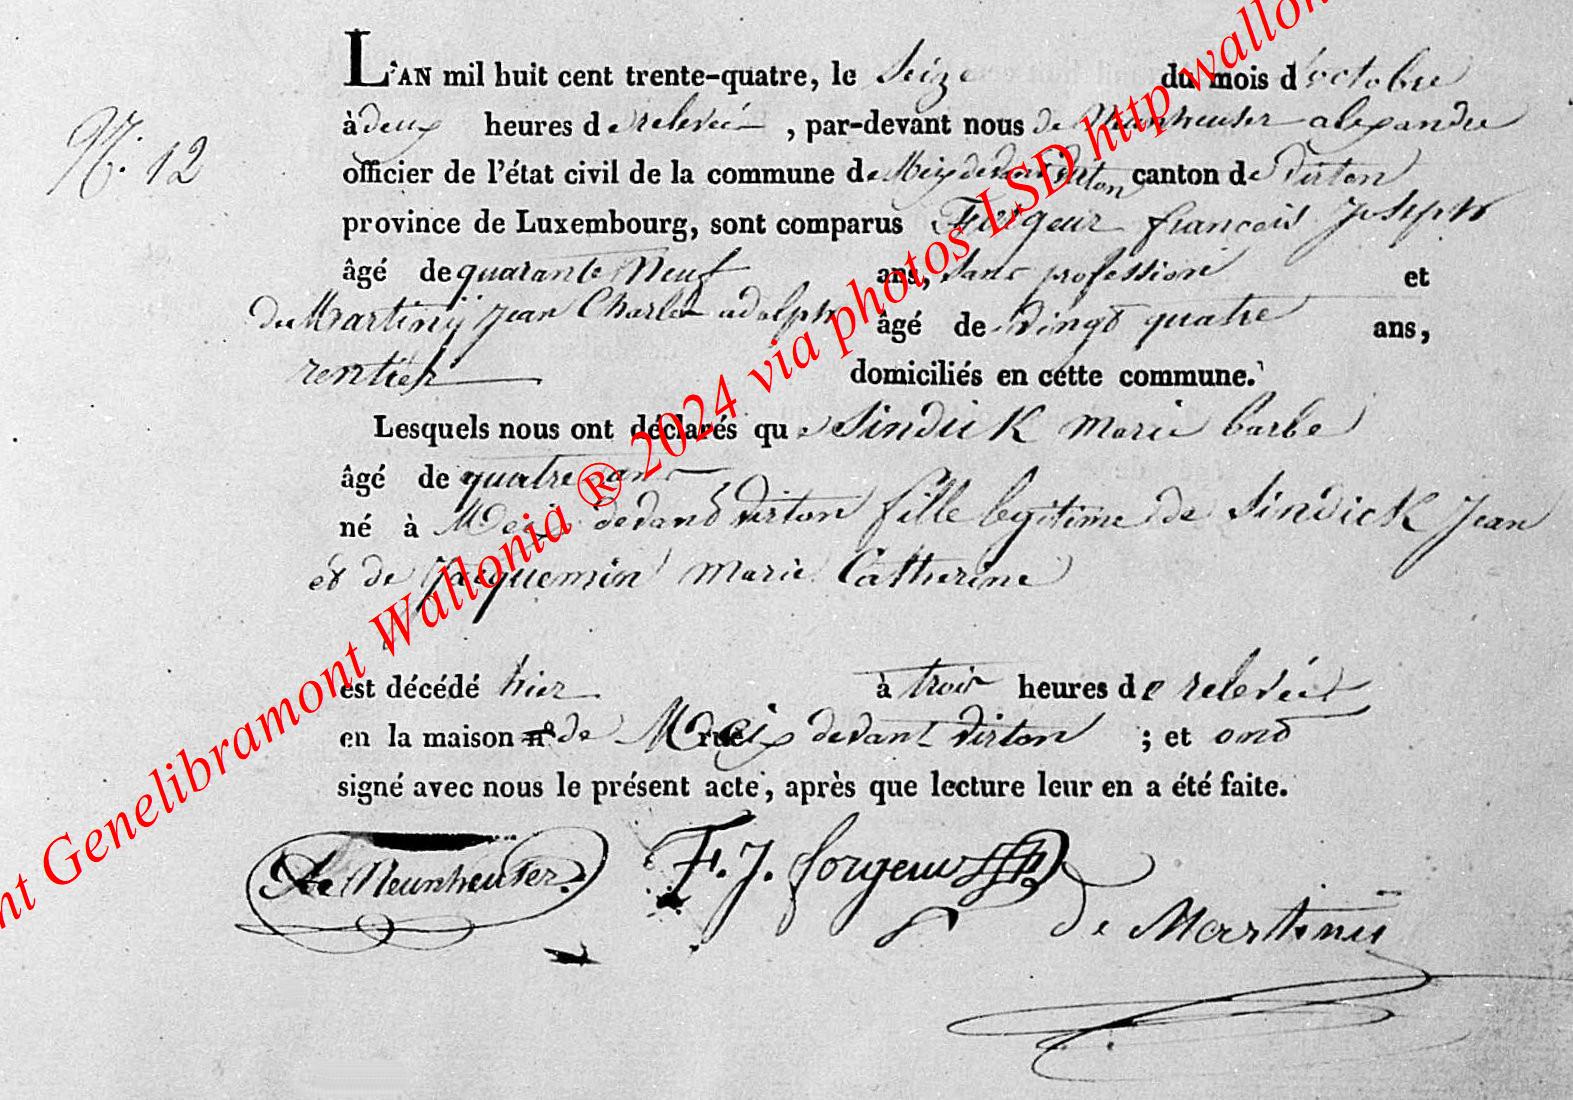 N. 12
L'AN mil huit cent trente-quatre, le Seize du mois d'octobre
à deux heures de relevée, par-devant nous de Neunheuser alexandre
officier de l'état civil de la commune de Meix devant virton canton de virton
province de Luxembourg, sont comparus Forgeur francois Joseph
âgé de quarante Neuf ans, sans profession et
de Martiny jean Charles adolph âgé de vingt quatre ans,
rentier domiciliés en cette commune.
Lesquels nous ont déclarés que Sindick marie barbe
âgé de quatre ans
né à Meix devant virton fille legitime de Sindick Jean
et de Jacquemin marie Catherine
est décédé hier à trois heures de relevée
en la maison nº de rue Meix devant virton ; et ont
signé avec nous le présent acte, après que lecture leur en a été faite.
de Neunheuser. F. J. forgeur de Martiny
nt Genelibramont Wallonia ® 2024 via photos LSD http wallon